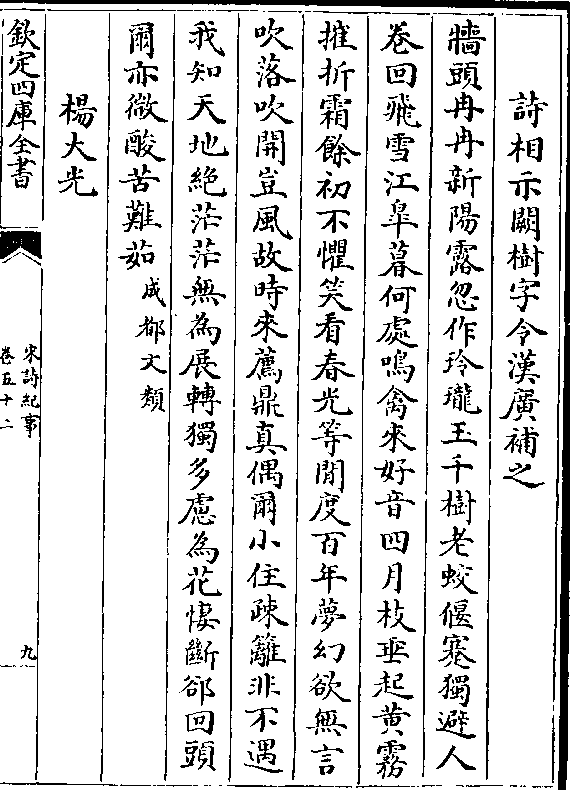 詩相示闕樹字令漢廣補之
牆頭冉冉新陽露忽作玲瓏玉千樹老蛟偃蹇獨避人
卷回飛雪江臯暮何處鳴禽來好音四月枝垂起黄霧
摧折霜餘初不懼笑看春光等閒度百年夢幻欲無言
吹落吹開豈風故時來薦鼎真偶爾小住疎籬非不遇
我知天地絶茫茫無為展轉獨多慮為花悽斷郤回頭
爾亦微酸苦難茹 成都文類
楊大光
欽定四庫全書
宋詩紀事
卷五十二
九